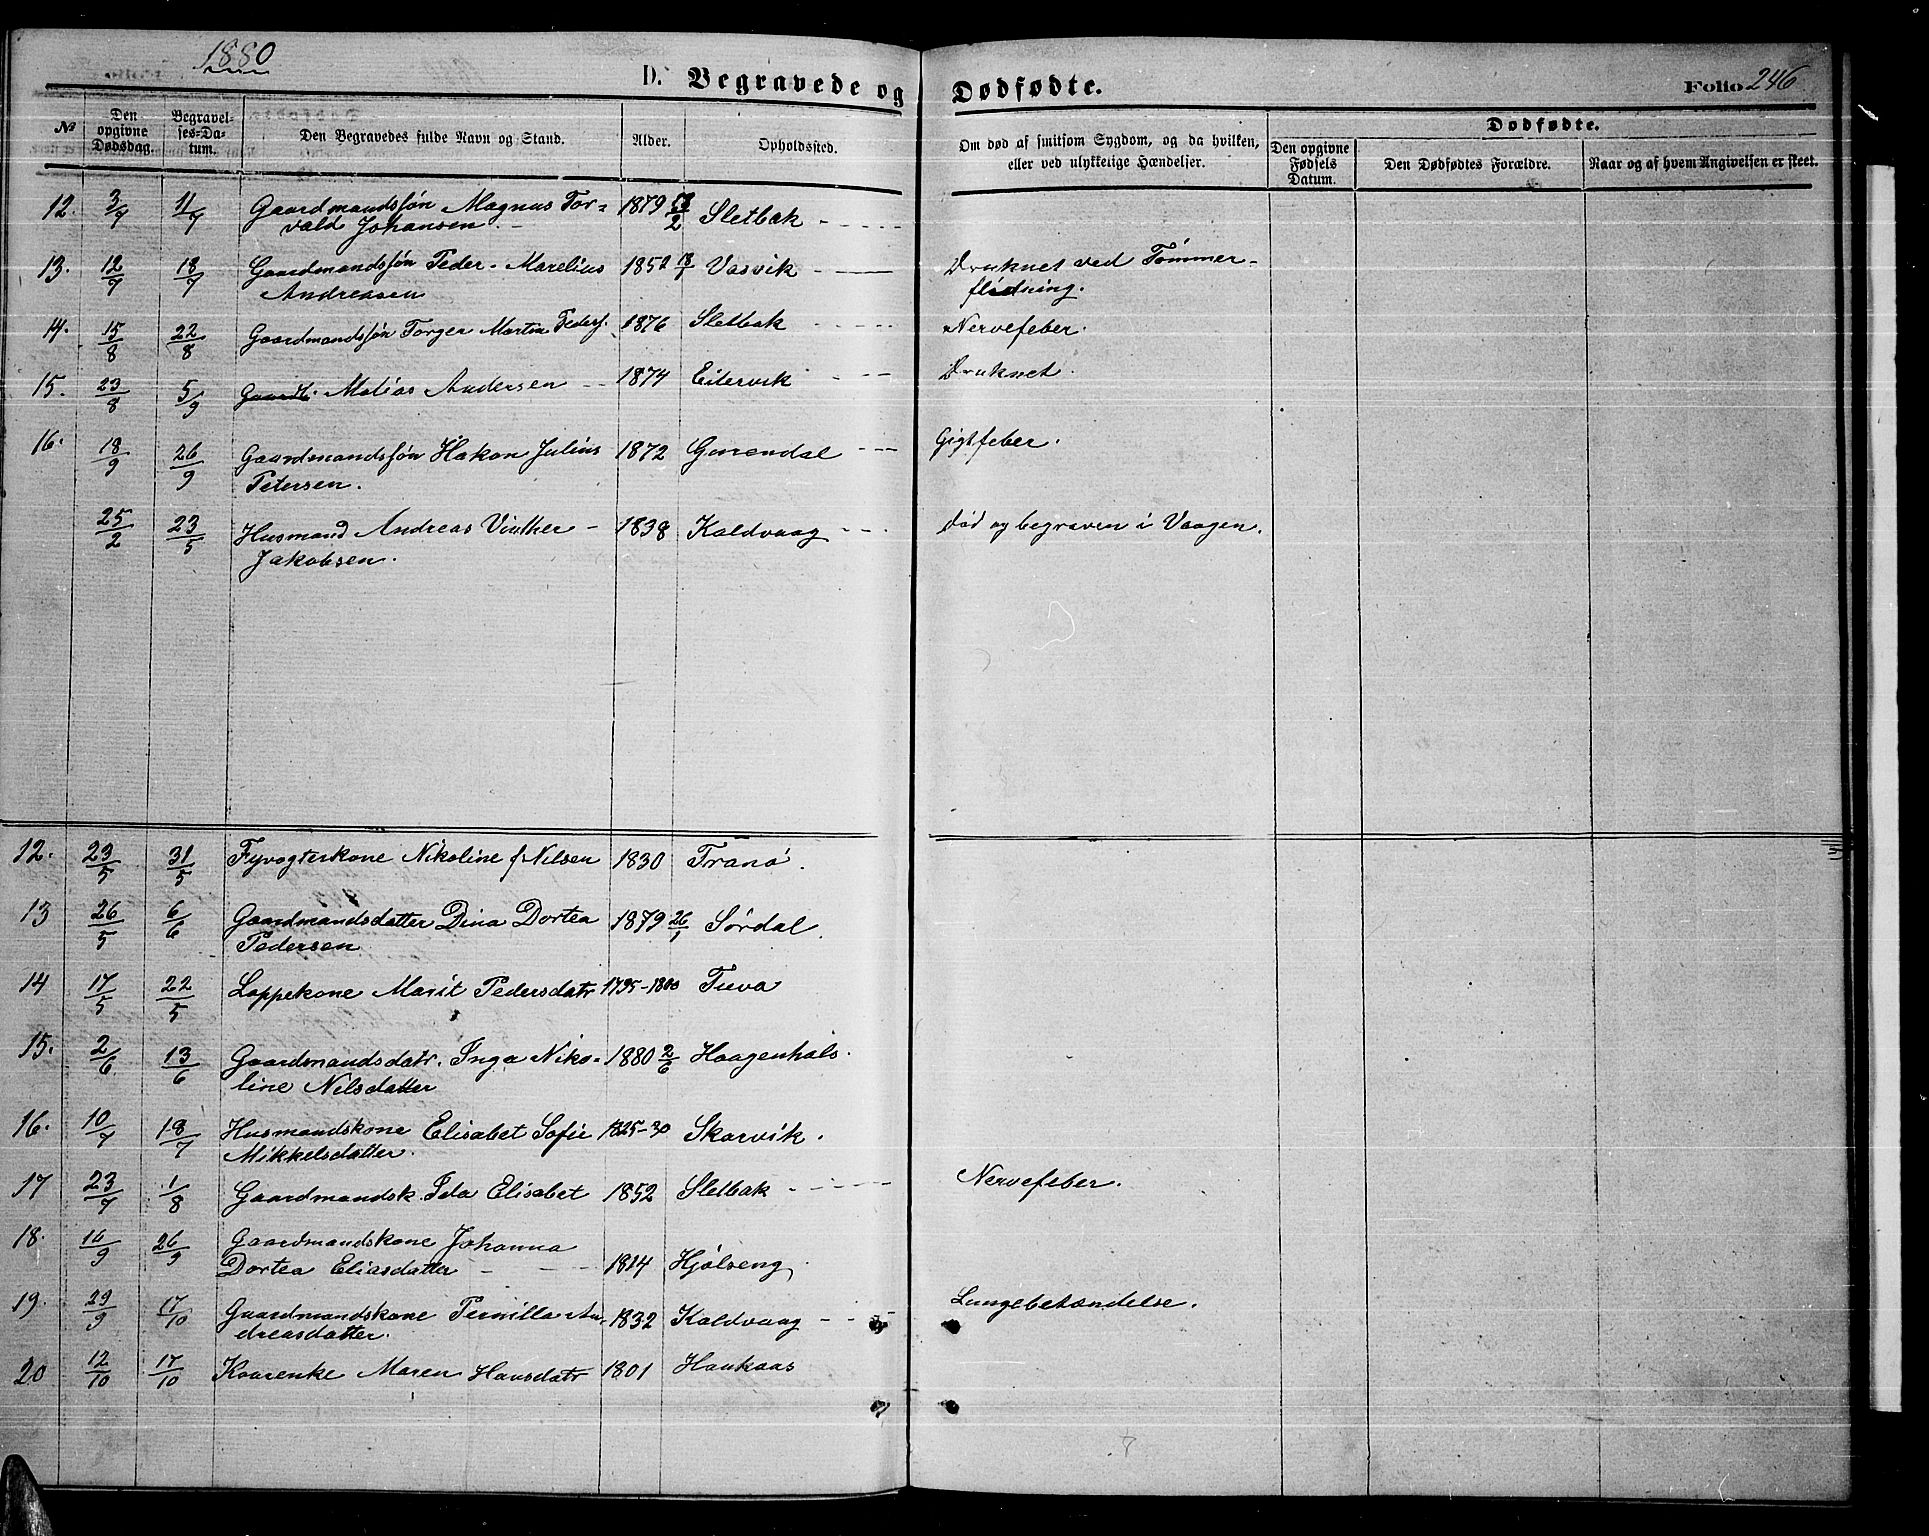 1880
D. Begravede og Dødfødte.
Folio 246
№ | Den opgivne Dødsdag. | Begravelses-Datum. | Den Begravedes fulde Navn og Stand. | Alder. | Opholdssted. | Om død af smitsom Sygdom, og da hvilken, eller ved ulykkelige Hændelser. | Dødfødte.
Den opgivne Fødsels Datum. | Den Dødfødtes Forældre. | Naar og af hvem Angivelsen er skeet.
12. 3/7 11/7 Gaardmandssøn Magnus Tor- 1879 /2 Sletbak
vald Johansen
13. 12/7 18/7 Gaardmandssøn Peder Marelius 1852 18/1 Vasvik Druknet ved Tømmer-
Andreasen flødning.
14. 15/8 22/8 Gaardmandssøn Torger Martin Peders. 1876 Sletbak Nervefeber.
15. 23/8 5/9 Matias Andersen 1874 Eitervik Druknet.
16. 18/9 26/9 Gaardmandssøn Hakon Julius 1872 Gjerendal Gigtfeber.
Petersen.
25/2 23/5 Husmand Andreas Vinther 1838 Kaldvaag død og begraven i Vaagen.
Jakobsen.
12. 23/5 31/5 Fyrvogterkone Nikoline f Nilsen 1830 Tranø.
13 26/5 6/6 Gaardmandsdatter Dina Dortea 1879 26/1 Sørdal.
Pedersen
14 17/5 22/5 Lappekone Marit Pedersdatr 1795-1800 Tuva
15. 2/6 13/6 Gaardmandsdatr. Inga Niko- 1880 2/6 Haagenhals.
line Nilsdatter
16. 10/7 18/7 Husmandskone Elisabet Sofie 1825-30 Skarvik.
Mikkelsdatter.
17 23/7 1/8 Gaardmandsk. Ida Elisabet 1852 Sletbak Nervefeber.
18. 16/9 26/9 Gaardmandskone Johanna
Dortea Eliasdatter 1814 Hjelseng
19. 29/9 17/10 Gaardmandskone Pernilla An- 1832 Kaldvaag Lungebetændelse.
dreasdatter.
20 12/10 17/10 Kaarenke Maren Hansdatr 1801 Haukaas